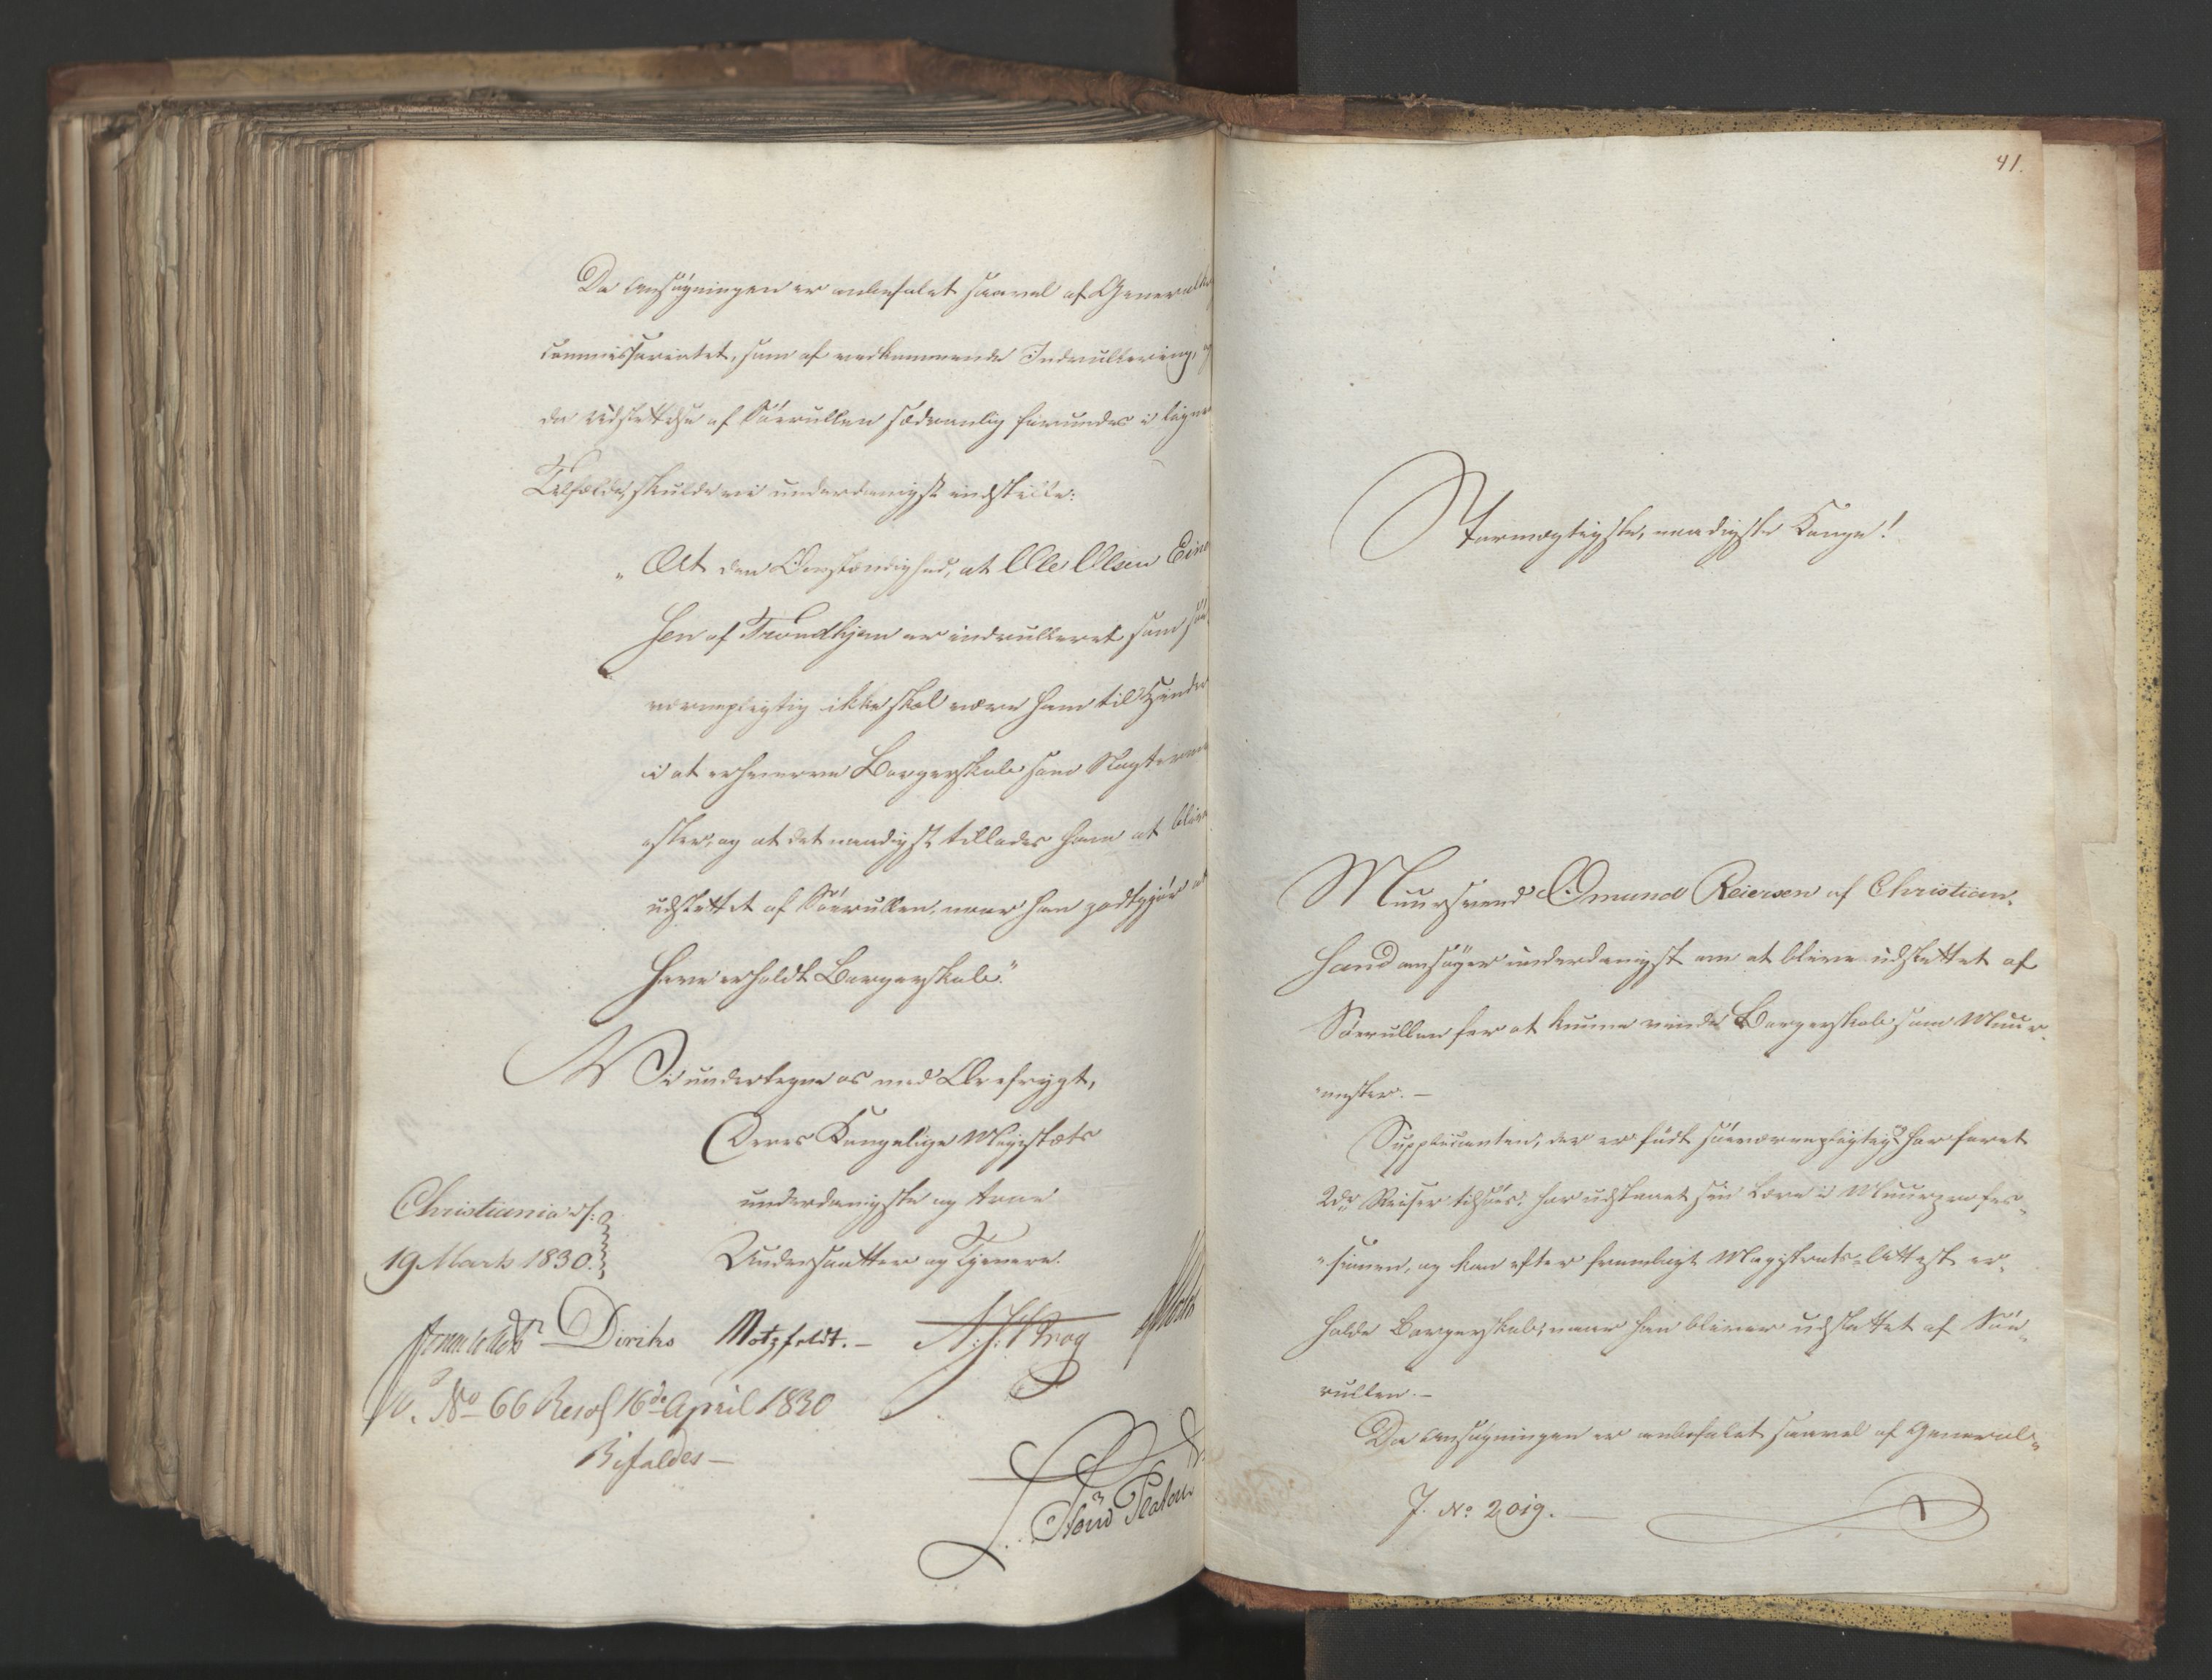 Da Ansøgningen er anbefalet saavel af General
commissariatet, som af vedkommende Indrullering,
da Udslettelse af Søerullen sædvanlig forundes i lign
Tilfælde, skulde vi underdanigst indstille:
„At den Omstændighed, at Ole Olsen Ein
sen af Trondhjem er indrulleret som
værnepligtig ikke skal være ham til Hinder
i at erhverve Borgerskab som
ster, og at det naadigst tillades ham at blive
udslettet af Søerullen, naar han godtgjør
have erholdt Borgerskab."
Vi undertegne os med Ærefrygt,
Deres Kongelige Majestæts
underdanigste og troe
Undersaatter og Tjenere.
Christiania d:
19 Marts 1830.
Diriks Motzfeldt.- Krog
No 66 Resol 16de April 1830
Bifaldes -
41.
Stormægtigste, naadigste Konge!
Muursvend Omund Reiersen af Christian-
sand ansøger underdanigst om at blive udslettet af
Søerullen for at kunne vinde Borgerskab som Muur-
mester. -
Supplicanten, der er født søeværnepligtig, har faret
2de Reiser tilsøes, har udstaaet sin Lære i Muurprofes-
sionen, og kan efter fremlagt Magistrats-Attest er-
holde Borgerskab, naar han bliver udslettet af Søe-
rullen. -
Da Ansøgningen er anbefalet saavel af General-
J. No 2019. -